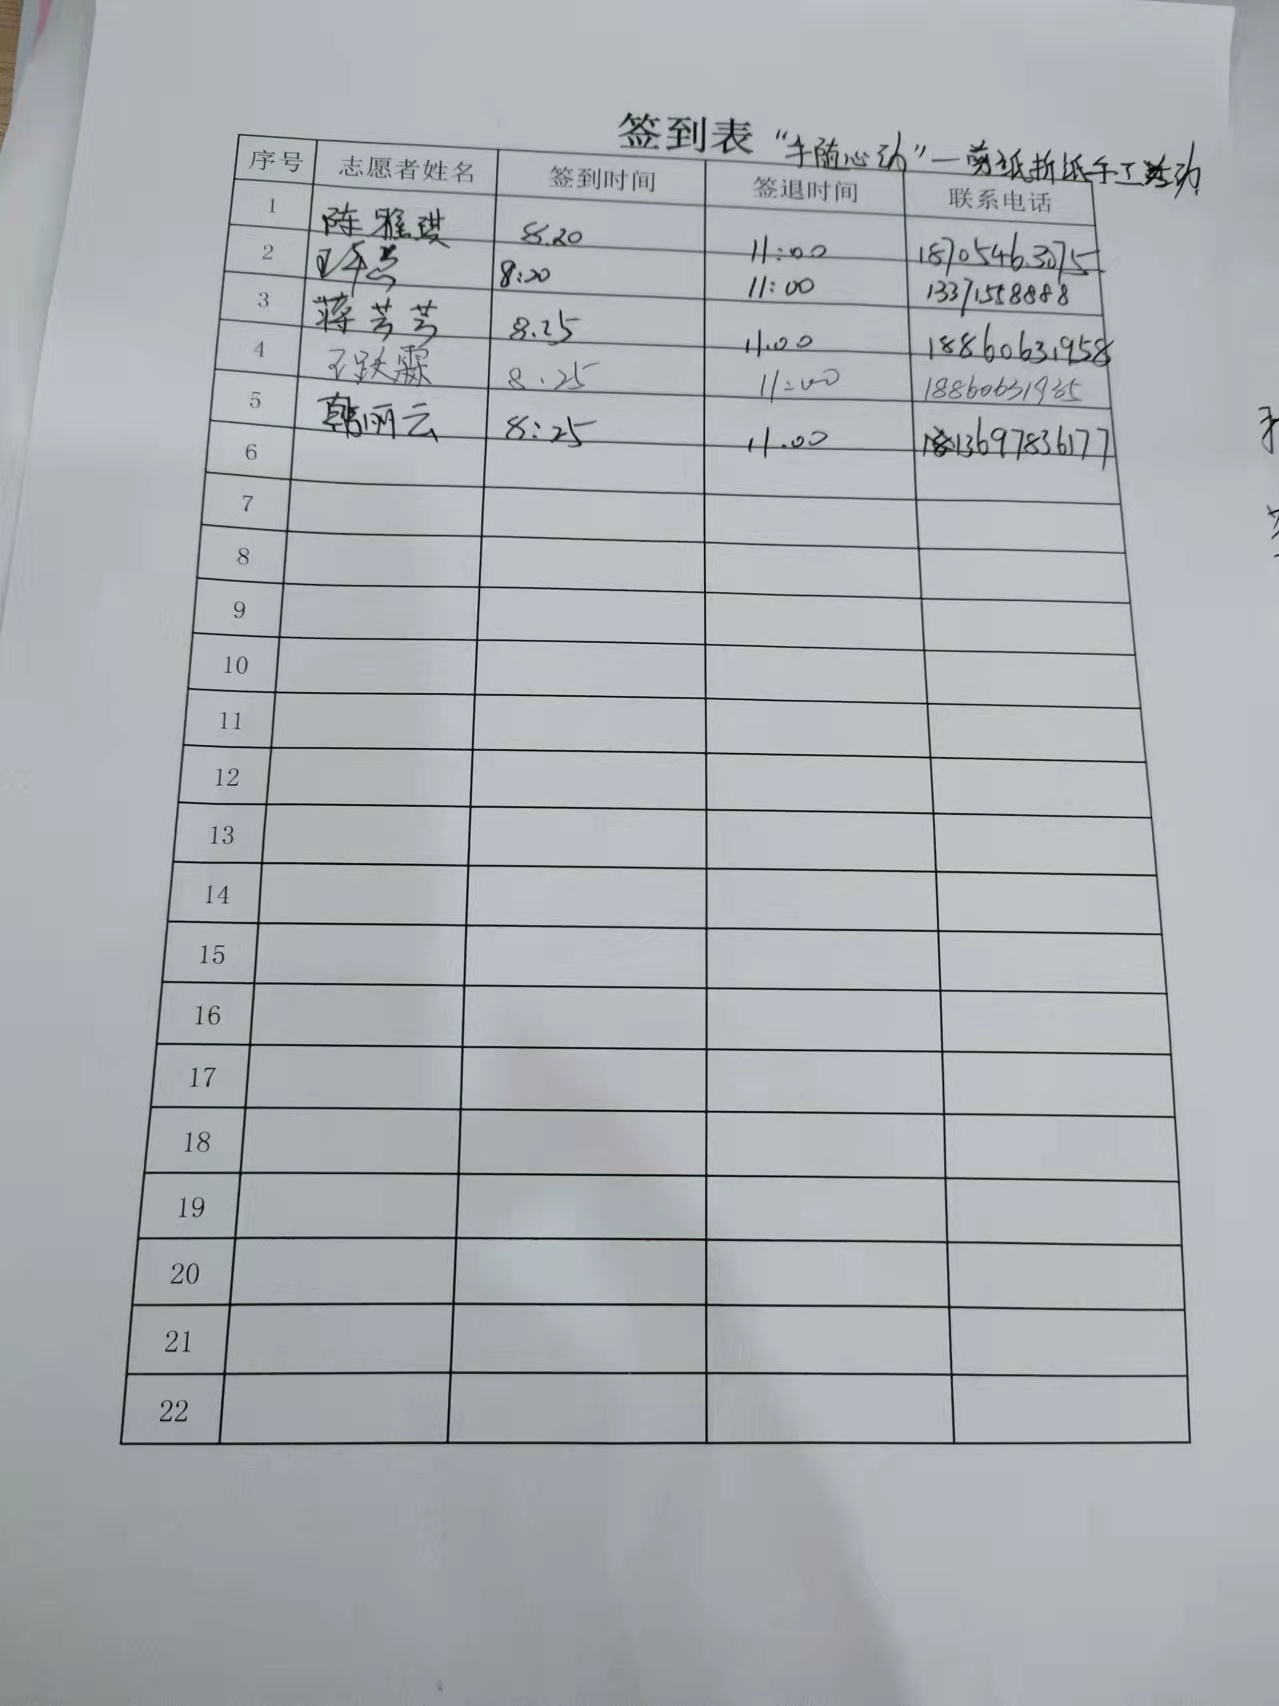 签到表 "手随心动"—剪纸折纸手工活动
序号 志愿者姓名 签到时间 签退时间 联系电话
1 陈雅琪 8.20 11:00 18705463075
2 8:20 11:00 13371558888
3 蒋芸芸 8.25 11.00 18860631958
4 霖 8.25 11:00
5 韩丽云 8:25 11.00 13697836177
6
7
8
9
10
11
12
13
14
15
16
17
18
19
20
21
22